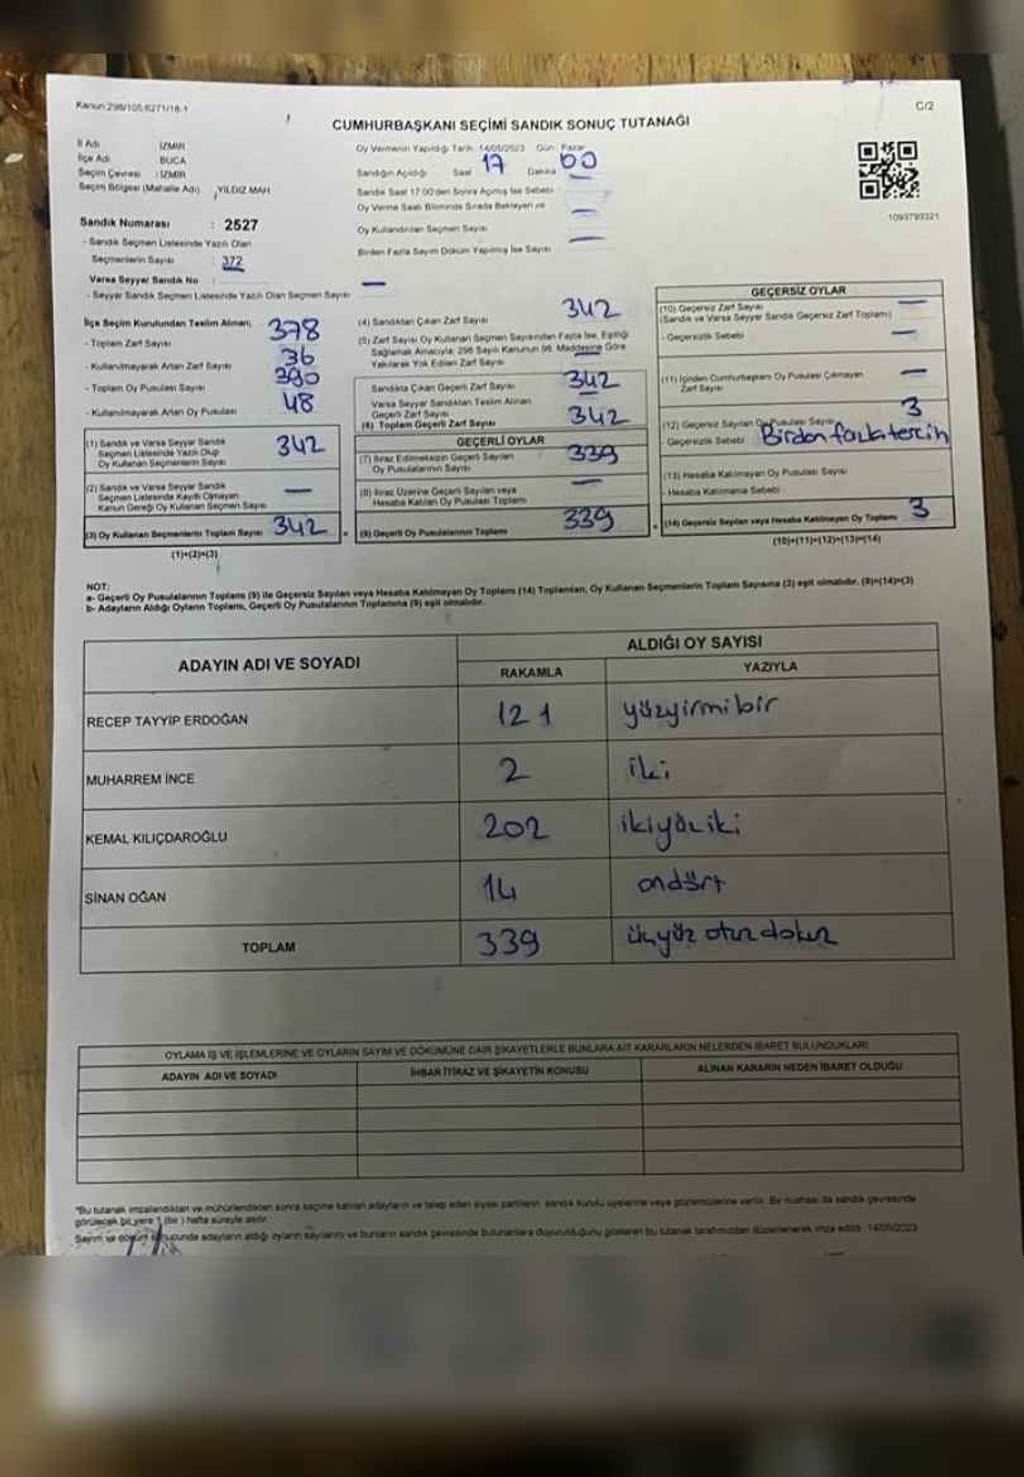 Kanun 298/105 6271/18.1
C/2
CUMHURBAŞKANI SEÇİMİ SANDIK SONUÇ TUTANAĞI
İl Adı İZMİR
İlçe Adı BUCA
Seçim Çevresi : İZMİR
Seçim Bölgesi (Mahalle Adı) YILDIZ MAH
Sandık Numarası : 2527
- Sandık Seçmen Listesinde Yazılı Olan
Seçmenlerin Sayısı : 372
Varsa Seyyar Sandık No : —
- Seyyar Sandık Seçmen Listesinde Yazılı Olan Seçmen Sayısı
Oy Vermenin Yapıldığı Tarih 14/05/2023 Gün Pazar
Sandığın Açıldığı Saat 17 Dakika 00
Sandık Saat 17.00'den Sonra Açılmış İse Sebebi —
Oy Verme Saati Bitiminde Sırada Bekleyen ve
Oy Kullandırılan Seçmen Sayısı —
Birden Fazla Sayım Döküm Yapılmış İse Sayısı —
1093793321
İlçe Seçim Kurulundan Teslim Alınan;
- Toplam Zarf Sayısı 378
- Kullanılmayarak Artan Zarf Sayısı 36
- Toplam Oy Pusulası Sayısı 390
- Kullanılmayarak Artan Oy Pusulası 48
(1) Sandık ve Varsa Seyyar Sandık
Seçmen Listesinde Yazılı Olup
Oy Kullanan Seçmenlerin Sayısı 342
(2) Sandık ve Varsa Seyyar Sandık
Seçmen Listesinde Kayıtlı Olmayan
Kanun Gereği Oy Kullanan Seçmen Sayısı —
(3) Oy Kullanan Seçmenlerin Toplam Sayısı 342 =
(1)+(2)=(3)
(4) Sandıktan Çıkan Zarf Sayısı 342
(5) Zarf Sayısı Oy Kullanan Seçmen Sayısından Fazla İse, Eşitliği
Sağlamak Amacıyla, 298 Sayılı Kanunun 98. Maddesine Göre
Yakılarak Yok Edilen Zarf Sayısı —
Sandıkta Çıkan Geçerli Zarf Sayısı 342
Varsa Seyyar Sandıktan Teslim Alınan
Geçerli Zarf Sayısı
(6) Toplam Geçerli Zarf Sayısı 342
GEÇERLİ OYLAR
(7) İtiraz Edilmeksizin Geçerli Sayılan
Oy Pusulalarının Sayısı 339
(8) İtiraz Üzerine Geçerli Sayılan veya
Hesaba Katılan Oy Pusulası Toplamı —
(9) Geçerli Oy Pusulalarının Toplamı 339 +
GEÇERSİZ OYLAR
(10) Geçersiz Zarf Sayısı —
(Sandık ve Varsa Seyyar Sandık Geçersiz Zarf Toplamı)
- Geçersizlik Sebebi —
(11) İçinden Cumhurbaşkanı Oy Pusulası Çıkmayan
Zarf Sayısı —
(12) Geçersiz Sayılan Oy Pusulası Sayısı 3
- Geçersizlik Sebebi Birden fazla tercih
(13) Hesaba Katılmayan Oy Pusulası Sayısı
- Hesaba Katılmama Sebebi
(14) Geçersiz Sayılan veya Hesaba Katılmayan Oy Toplamı 3
(10)+(11)+(12)+(13)=(14)
NOT:
a- Geçerli Oy Pusulalarının Toplamı (9) ile Geçersiz Sayılan veya Hesaba Katılmayan Oy Toplamı (14) Toplamları, Oy Kullanan Seçmenlerin Toplam Sayısına (3) eşit olmalıdır. (9)+(14)=(3)
b- Adayların Aldığı Oyların Toplamı, Geçerli Oy Pusulalarının Toplamına (9) eşit olmalıdır.
ADAYIN ADI VE SOYADI ALDIĞI OY SAYISI
RAKAMLA YAZIYLA
RECEP TAYYİP ERDOĞAN 121 yüzyirmibir
MUHARREM İNCE 2 iki
KEMAL KILIÇDAROĞLU 202 ikiyüziki
SİNAN OĞAN 14 ondört
TOPLAM 339 üçyüz otuz dokuz
OYLAMA İŞ VE İŞLEMLERİNE VE OYLARIN SAYIM VE DÖKÜMÜNE DAİR ŞİKAYETLERLE BUNLARA AİT KARARLARIN NELERDEN İBARET BULUNDUKLARI
ADAYIN ADI VE SOYADI İHBAR İTİRAZ VE ŞİKAYETİN KONUSU ALINAN KARARIN NEDEN İBARET OLDUĞU
*Bu tutanak imzalandıktan ve mühürlendikten sonra seçime katılan adayların ve talep eden siyasi partilerin sandık kurulu üyelerine veya gözlemcilerine verilir. Bir nüshası da sandık çevresinde
görülecek bir yere 1 (bir) hafta süreyle asılır.
Sayım ve döküm sonucunda adayların aldığı oyların sayılarını ve bunların sandık çevresinde bulunanlara duyurulduğunu gösteren bu tutanak tarafımızdan düzenlenerek imza edildi. 14/05/2023